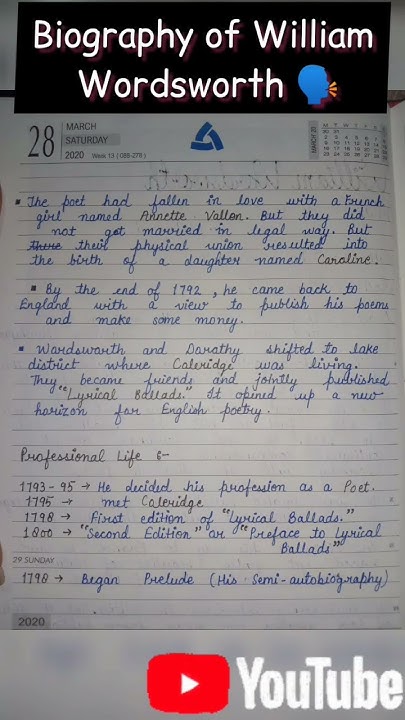 Biography of William
Wordsworth 🗣️
28 MARCH
SATURDAY
2020 Week 13 (088-278)
MARCH 20
The poet had fallen in love with a French
girl named Annette Vallon. But they did
not get married in legal way. But
there their physical union resulted into
the birth of a daughter named Caroline.
By the end of 1792, he came back to
England with a view to publish his poems
and make some money.
Wordsworth and Dorathy shifted to lake
district where Coleridge was living.
They became friends and jointly published
"Lyrical Ballads." It opened up a new
horizon for English poetry.
Professional Life :-
1793-95 → He decided his profession as a Poet.
1795 → met Coleridge
1798 → First edition of "Lyrical Ballads."
1800 → "Second Edition" or "Preface to Lyrical
Ballads"
29 SUNDAY
1798 → Began Prelude (His Semi-autobiography)
2020
YouTube